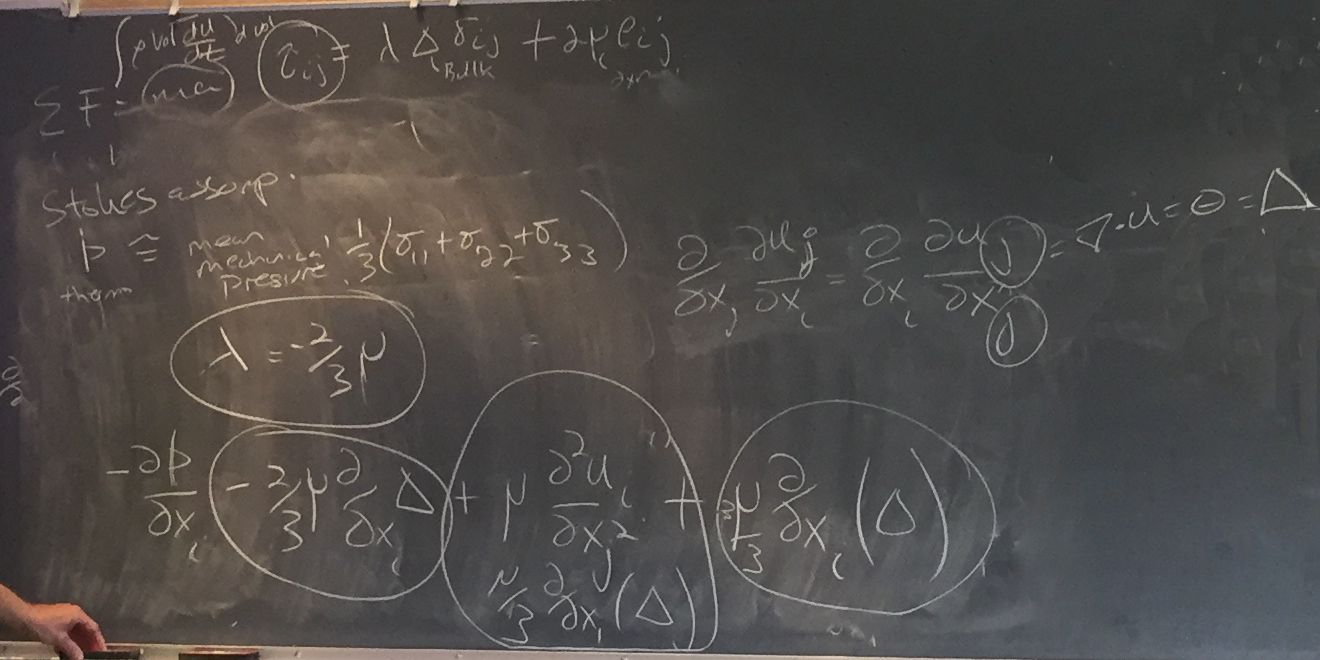 ∫ρ vol du/dt dvol
ΣF = ma τij = λ Δ δij + 2μ eij
Bulk
Stokes assomp.
p ≅ mean mechanical pressure 1/3(σ11+σ22+σ33)
then
λ = -2/3 μ
∂/∂xj ∂uj/∂xi = ∂/∂xi ∂uj/∂xj = ∇·u = 0 = Δ
-∂p/∂xi - 2/3 μ ∂/∂xi Δ + μ ∂²ui/∂xj² + μ/3 ∂/∂xi (Δ)
μ/3 ∂/∂xi (Δ)